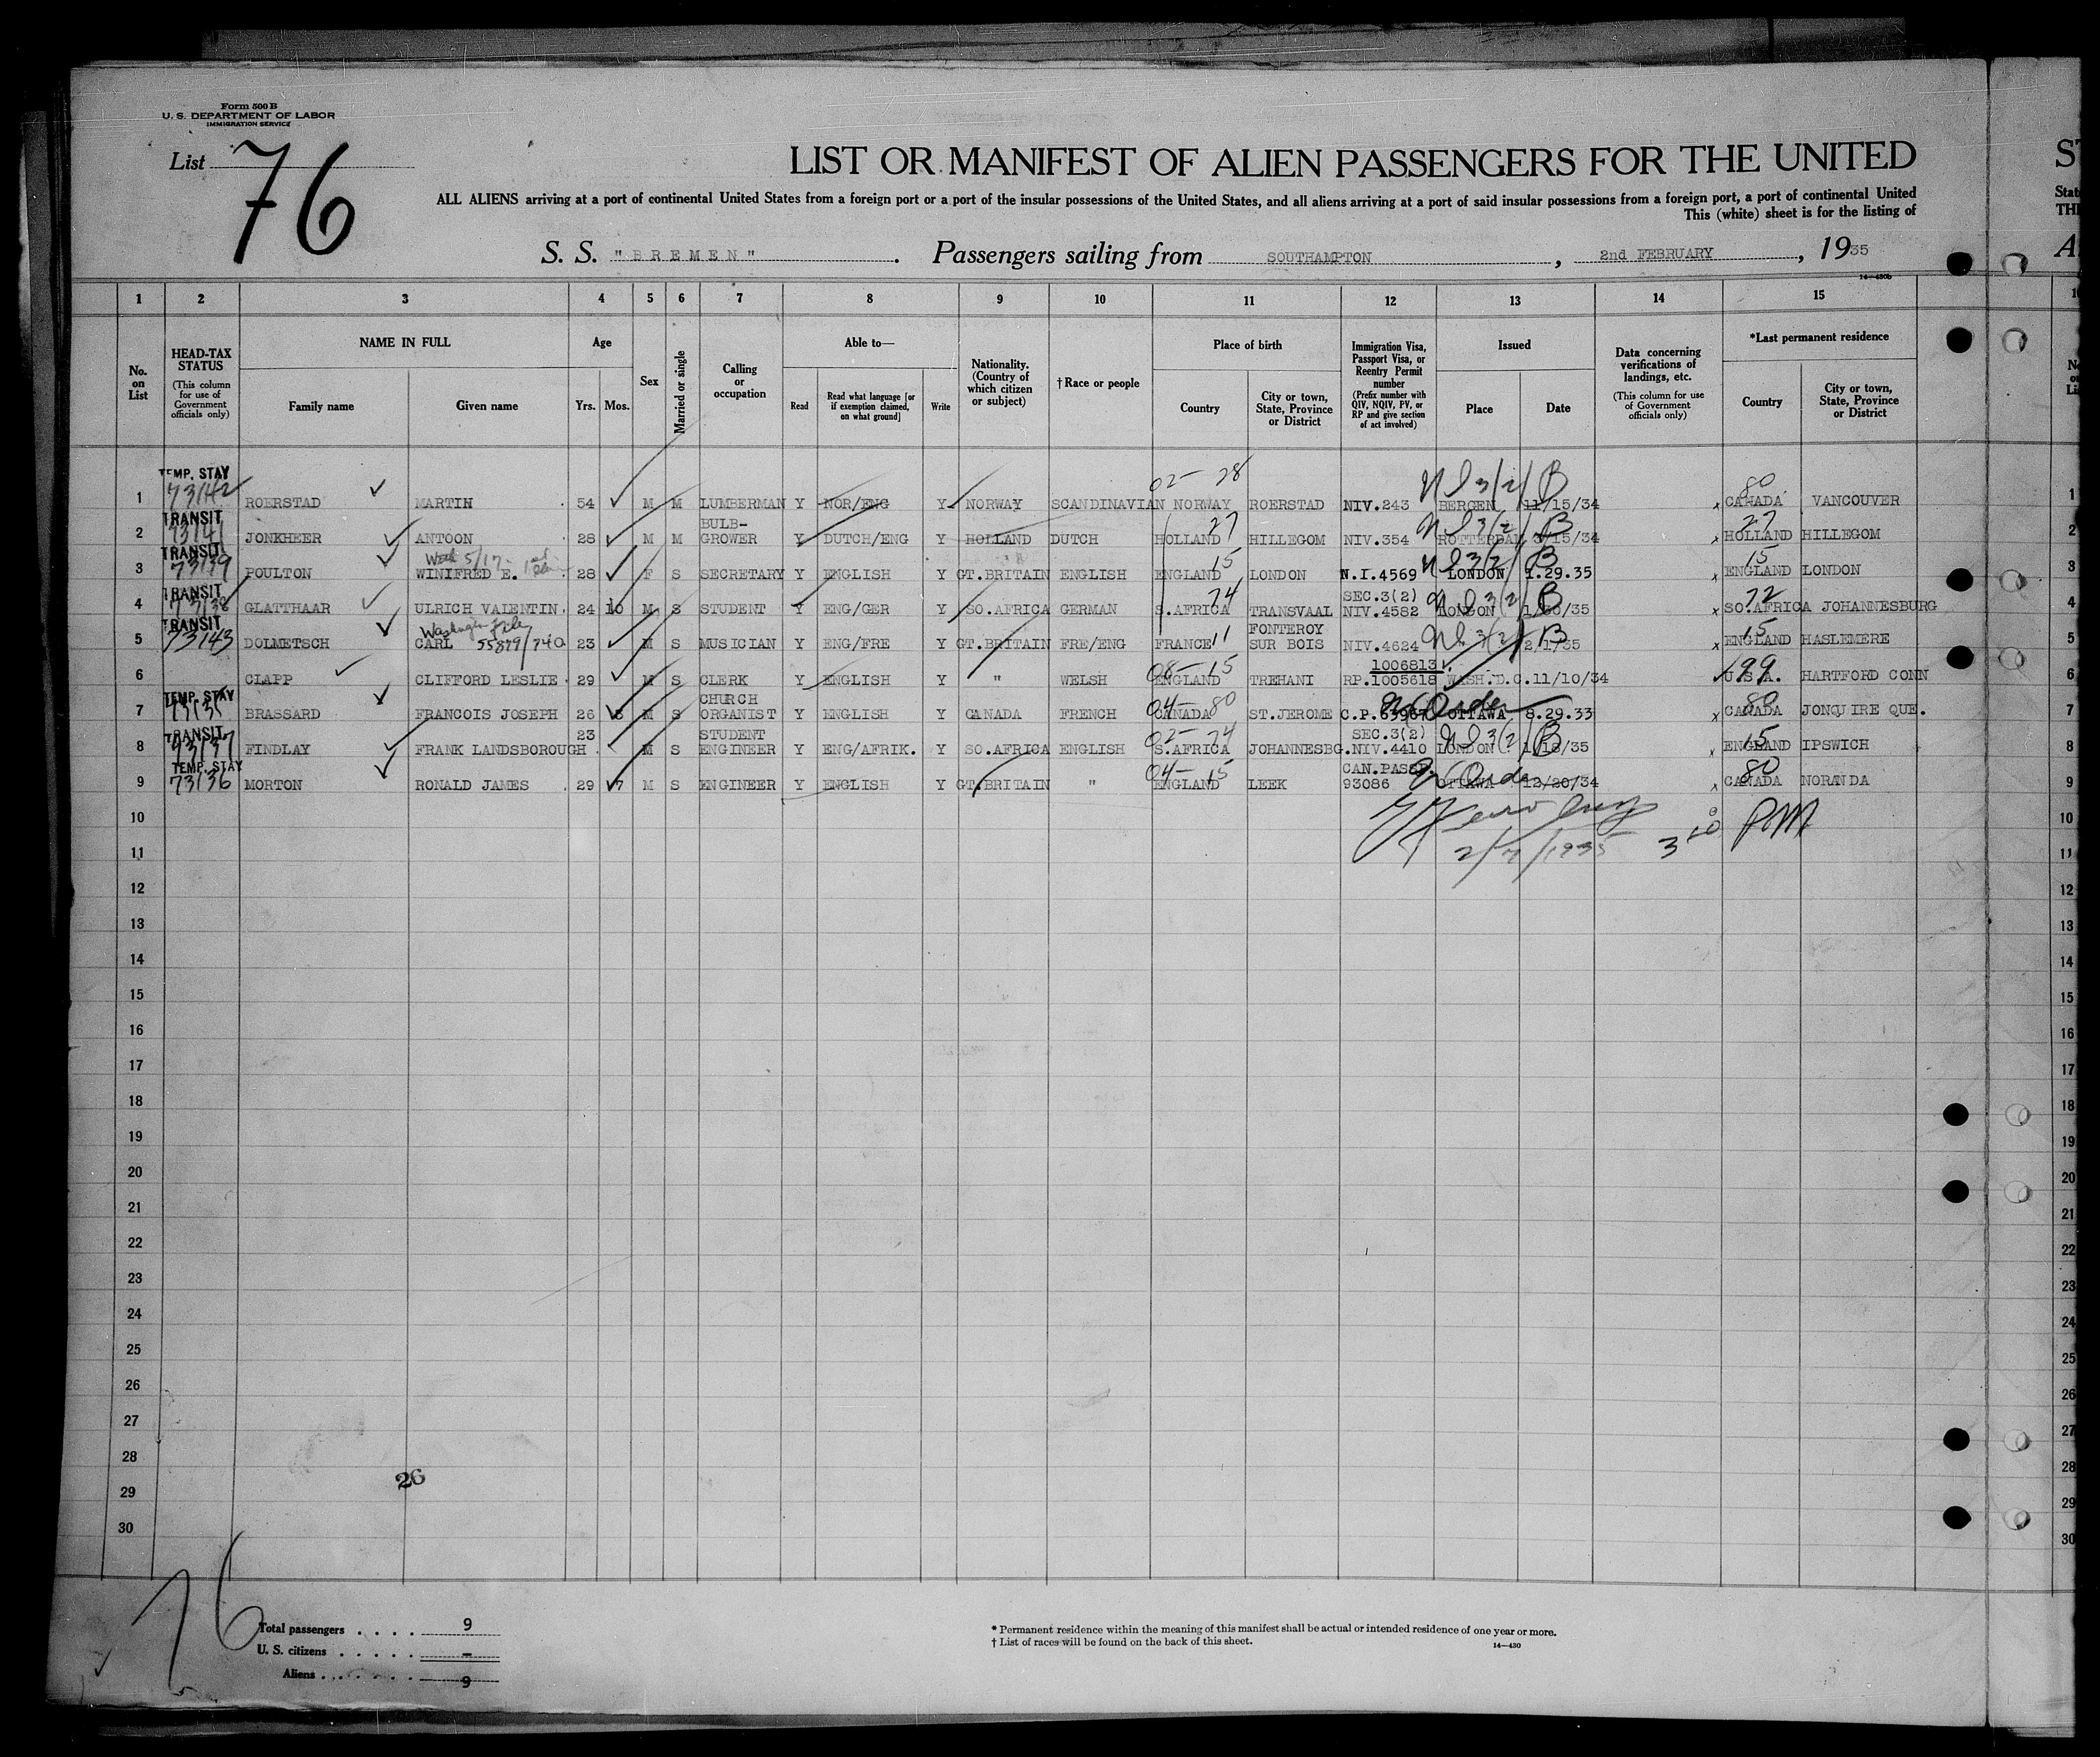 Form 500 B
U. S. DEPARTMENT OF LABOR
IMMIGRATION SERVICE
List 76
LIST OR MANIFEST OF ALIEN PASSENGERS FOR THE UNITED
ALL ALIENS arriving at a port of continental United States from a foreign port or a port of the insular possessions of the United States, and all aliens arriving at a port of said insular possessions from a foreign port, a port of continental United
This (white) sheet is for the listing of
S. S. "BREMEN". Passengers sailing from SOUTHAMPTON, 2nd FEBRUARY, 1935
14—430b
1 2 3 4 5 6 7 8 9 10 11 12 13 14 15
No. on List
HEAD-TAX STATUS (This column for use of Government officials only)
NAME IN FULL Family name Given name
Age Yrs. Mos.
Sex
Married or single
Calling or occupation
Able to— Read Read what language [or if exemption claimed, on what ground] Write
Nationality. (Country of which citizen or subject)
† Race or people
Place of birth Country City or town, State, Province or District
Immigration Visa, Passport Visa, or Reentry Permit number (Prefix number with QIV, NQIV, PV, or RP and give section of act involved)
Issued Place Date
Data concerning verifications of landings, etc. (This column for use of Government officials only)
*Last permanent residence Country City or town, State, Province or District
TEMP. STAY 02- 28 Nl 3/2/ B 80
1 73142 ROERSTAD MARTIN 54 M M LUMBERMAN Y NOR/ENG Y NORWAY SCANDINAVIAN NORWAY ROERSTAD NIV.243 BERGEN 11/15/34 x CANADA VANCOUVER 1
TRANSIT BULB- 27 Nl 3(2) B 27
2 73141 JONKHEER ANTOON 28 M M GROWER Y DUTCH/ENG Y HOLLAND DUTCH HOLLAND HILLEGOM NIV.354 ROTTERDAM /15/34 x HOLLAND HILLEGOM 2
TRANSIT 5/17 15 Nl 3(2) B 15
3 73139 POULTON WINIFRED E. 28 F S SECRETARY Y ENGLISH Y GT.BRITAIN ENGLISH ENGLAND LONDON N.I.4569 LONDON 1.29.35 x ENGLAND LONDON 3
TRANSIT 74 SEC.3(2) Nl 3(2) B 72
4 73138 GLATTHAAR ULRICH VALENTIN. 24 10 M S STUDENT Y ENG/GER Y SO.AFRICA GERMAN S.AFRICA TRANSVAAL NIV.4582 LONDON 1/30/35 x SO.AFRICA JOHANNESBURG 4
TRANSIT Washington file FONTEROY 15
5 73143 DOLMETSCH CARL 55879/740 23 M S MUSICIAN Y ENG/FRE Y GT.BRITAIN FRE/ENG FRANCE 11 SUR BOIS NIV.4624 Nl 3(2) B 2/1/35 x ENGLAND HASLEMERE 5
08-15 1006813 99
6 CLAPP CLIFFORD LESLIE 29 M S CLERK Y ENGLISH Y " WELSH ENGLAND TREHANI RP.1005618 WASH.D.C.11/10/34 U.S.A. HARTFORD CONN 6
TEMP. STAY CHURCH 04- 80 80
7 73135 BRASSARD FRANCOIS JOSEPH 26 M S ORGANIST Y ENGLISH Y CANADA FRENCH CANADA ST.JEROME C.P.63967 OTTAWA 8.29.33 x CANADA JONQUIRE QUE. 7
TRANSIT 23 STUDENT 02- 74 SEC.3(2) Nl 3(2) B 15
8 73137 FINDLAY FRANK LANDSBOROUGH M S ENGINEER Y ENG/AFRIK. Y SO.AFRICA ENGLISH S.AFRICA JOHANNESBG.NIV.4410 LONDON 1/18/35 x ENGLAND IPSWICH 8
TEMP. STAY 04- 15 CAN.PASSP. 80
9 73136 MORTON RONALD JAMES 29 7 M S ENGINEER Y ENGLISH Y GT.BRITAIN " ENGLAND LEEK 93086 OTTAWA 12/20/34 x CANADA NORANDA 9
10 3 10 PM 10
11 2/7/1935 11
12 12
13 13
14 14
15 15
16 16
17 17
18 18
19 19
20 20
21 21
22 22
23 23
24 24
25 25
26 26
27 27
28 28
26
29 29
30 30
76
Total passengers . . . . 9
U. S. citizens . . . . . –
Aliens . . . . . . . 9
* Permanent residence within the meaning of this manifest shall be actual or intended residence of one year or more.
† List of races will be found on the back of this sheet.
14—430